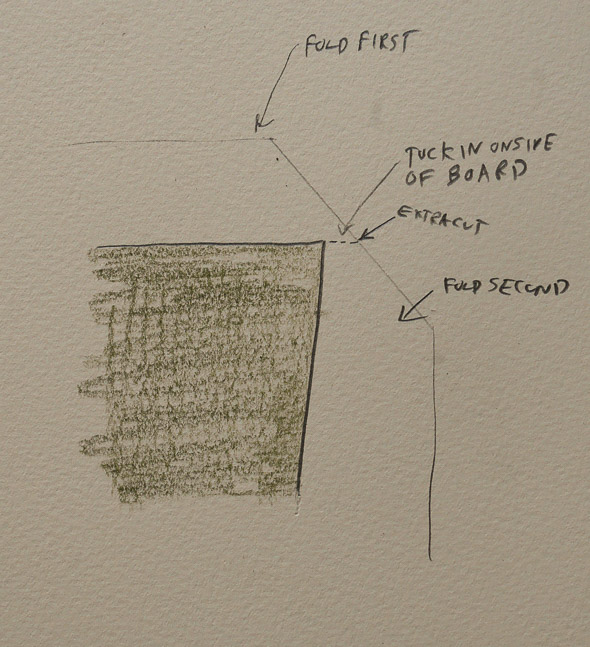 FOLD FIRST
TUCK IN ON SIVE
OF BOARD
EXTRA CUT
FOLD SECOND